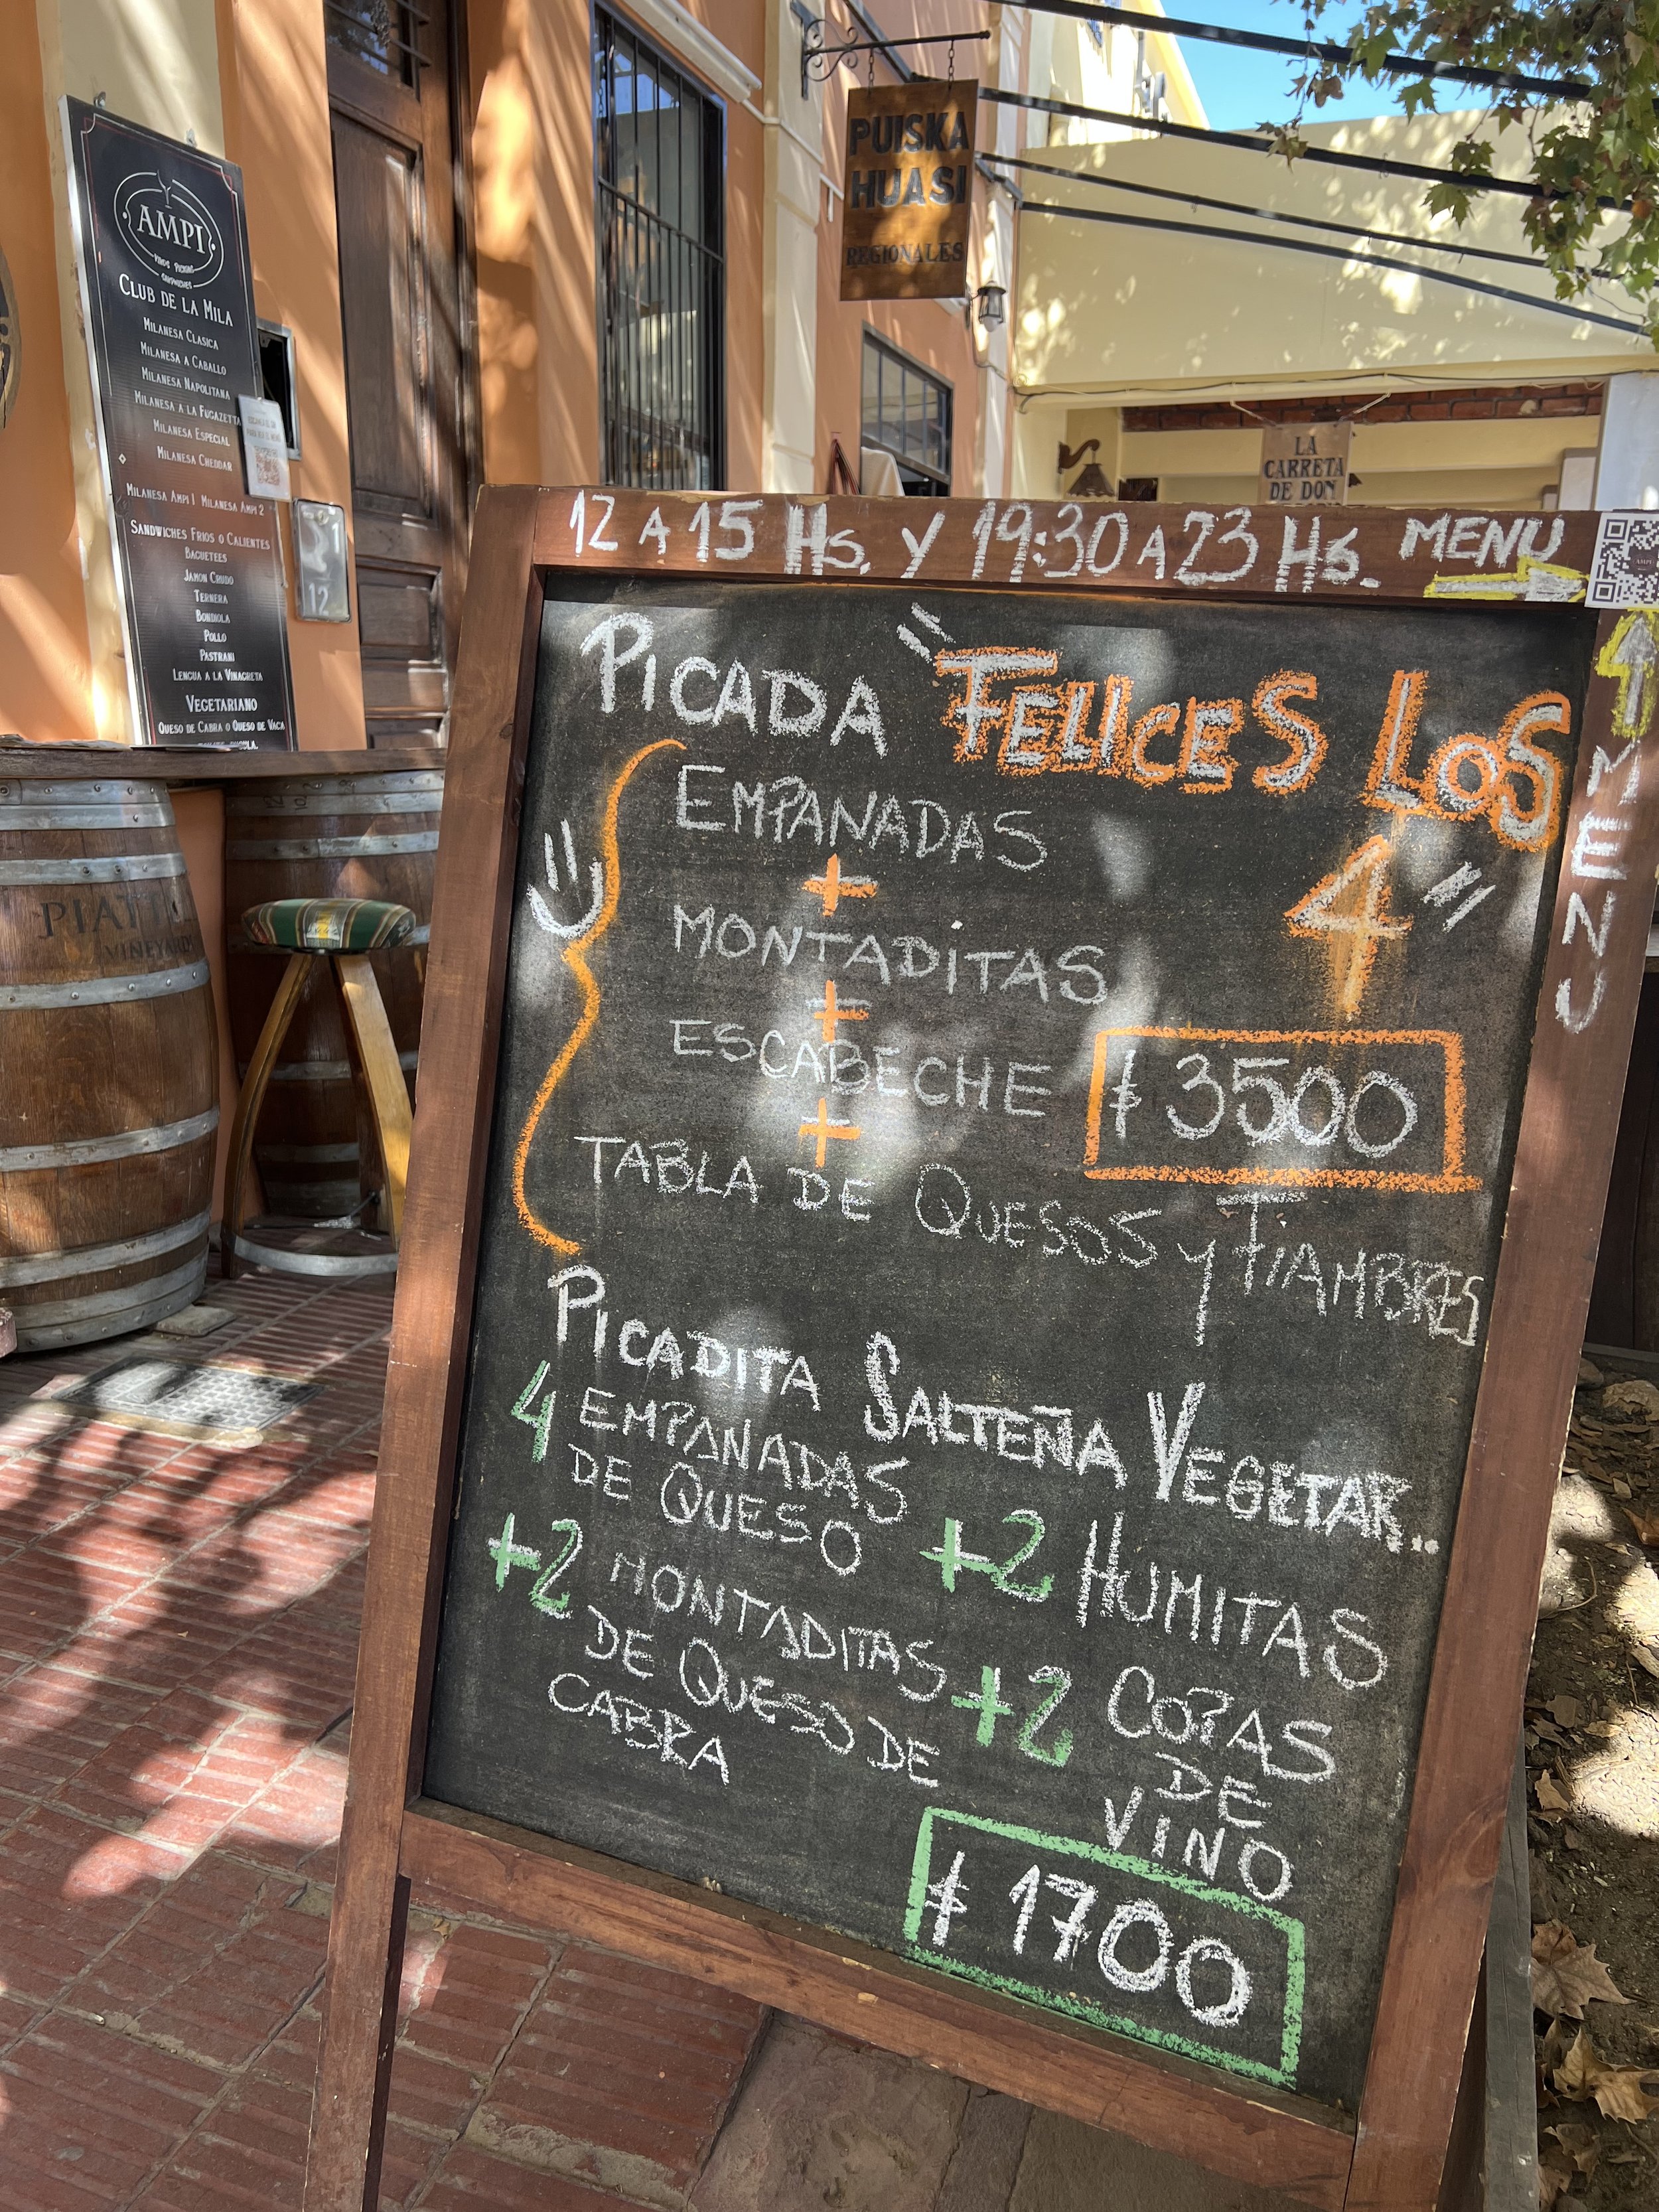 AMPI
VINOS PICADAS
SANDWICHES
CLUB DE LA MILA
MILANESA CLASICA
MILANESA A CABALLO
MILANESA NAPOLITANA
MILANESA A LA FUGAZETTA
MILANESA ESPECIAL
MILANESA CHEDDAR
MILANESA AMPI 1 MILANESA AMPI 2
SANDWICHES FRIOS O CALIENTES
BAGUETEES
JAMON CRUDO
TERNERA
BONDIOLA
POLLO
PASTRAMI
LENGUA A LA VINAGRETA
VEGETARIANO
QUESO DE CABRA O QUESO DE VACA
12
PUISKA
HUASI
REGIONALES
LA
CARRETA
DE DON
PIATTI
VINEYARD
12 A 15 Hs. Y 19:30 A 23 Hs. MENU
MENU
PICADA "FELICES LOS
4"
EMPANADAS
+
MONTADITAS
+
ESCABECHE $ 3500
+
TABLA DE QUESOS Y FIAMBRES
PICADITA SALTEÑA VEGETAR..
4 EMPANADAS
DE QUESO
+2 HUMITAS
+2 MONTADITAS
DE QUESO DE
CABRA
+2 COPAS
DE
VINO
$ 1700